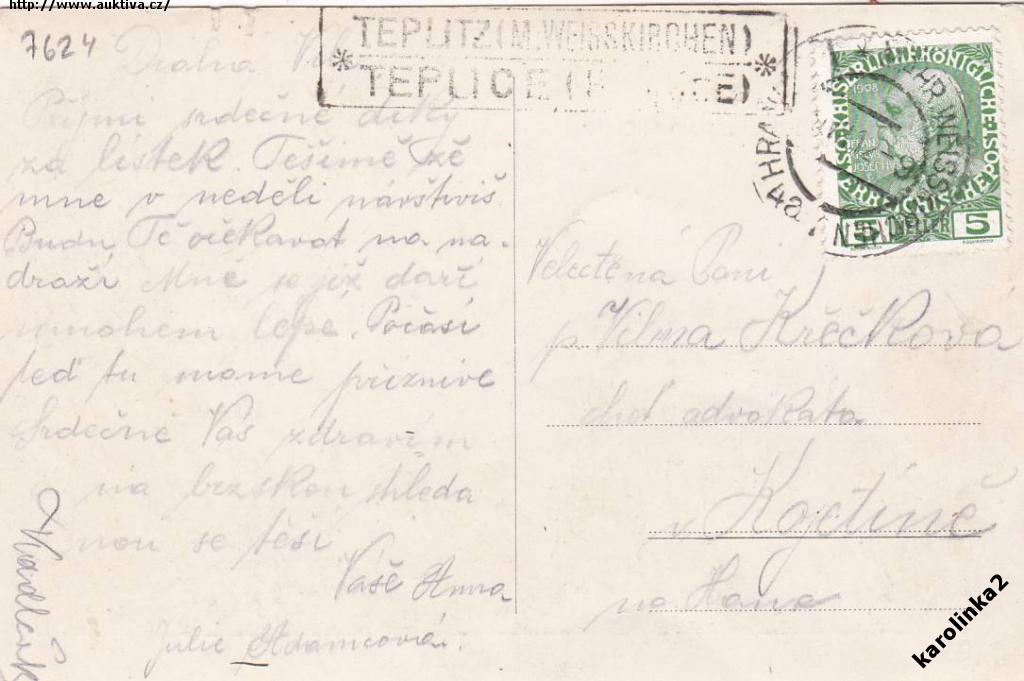 http://www.auktiva.cz/
7624
TEPLITZ (M. WEISSKIRCHEN)
TEPLICE
Drahá
Přijmi srdečné díky
za lístek. Těšímě zě
mne v neděli návštíviš.
Budu Tě očekávat na ná-
draží Mně se již daří
mnohem lépe. Počasí
teď tu máme příznivé
Srdečně Vás zdravím
na brzskou shleda
nou se těší
Vaše Anna
Julie Adamcová.
1908
5 5
Velectěná Paní
p. Vilma Křěčková
advokáta
v Kojetíně
na Hané
karolinka2